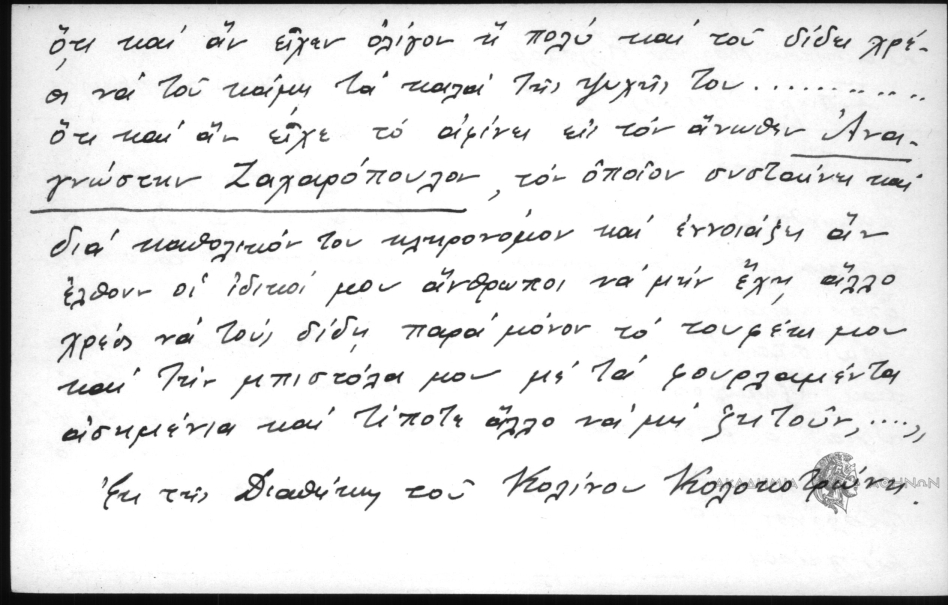 ὅτι καί ἄν εἶχεν ὀλίγον ἤ πολύ καί τοῦ δίδει χρέ-
ος νά τοῦ κάμῃ τά καλά τῆς ψυχῆς του............
ὅτι καί ἄν εἶχε τό ἀφίνει εἰς τόν ἄνωθεν Ἀνα-
γνώστην Ζαχαρόπουλον, τόν ὁποῖον συσταίνει καί
διά καθολικόν του κληρονόμον καί ἐννοιάζει ἄν
ἔλθουν οἱ ἰδικοί μου ἄνθρωποι νά μήν ἔχῃ ἄλλο
χρέος νά τούς δίδῃ παρά μόνον τό τουφέκι μου
καί τήν μπιστόλα μου μέ τά φουρλαμέντα
ἀσημένια καί τίποτε ἄλλο νά μή ζητοῦν,....,,
Ἐκ τῆς Διαθήκης τοῦ Κολίνου Κολοκοτρώνη.
ΑΚΑΔΗΜΙΑ ΑΘΗΝΩΝ